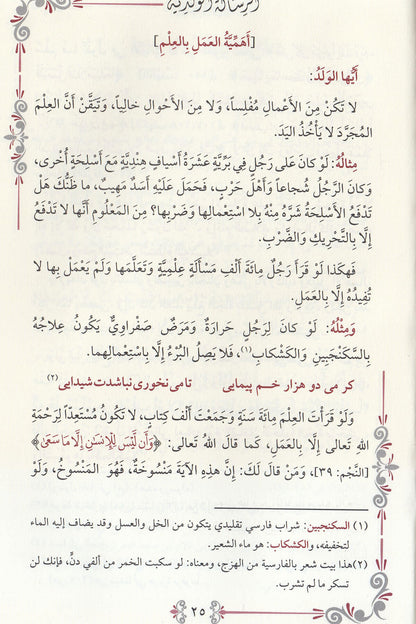 الرسالة الولدية
[أَهَمِّيَّةُ العَمَلِ بِالعِلْمِ]
أَيُّها الوَلَدُ:
لا تَكُنْ مِنَ الأَعْمالِ مُفْلِساً، وَلا مِنَ الأَحْوالِ خالِياً، وَتَيَقَّنْ أَنَّ العِلْمَ
المُجَرَّدَ لا يَأْخُذُ اليَدَ.
مِثالُهُ: لَوْ كانَ عَلى رَجُلٍ في بَرِّيَّةٍ عَشَرَةُ أَسْيافٍ هِنْدِيَّةٍ مَعَ أَسْلِحَةٍ أُخْرى،
وَكانَ الرَّجُلُ شُجاعاً وَأَهْلَ حَرْبٍ، فَحَمَلَ عَلَيْهِ أَسَدٌ مَهِيبٌ، ما ظَنُّكَ هَلْ
تَدْفَعُ الأَسْلِحَةُ شَرَّهُ مِنْهُ بِلا اسْتِعْمالِها وَضَرْبِها؟ مِنَ المَعْلُومِ أَنَّها لا تَدْفَعُ
إِلَّا بِالتَّحْرِيكِ وَالضَّرْبِ.
فَهكَذا لَوْ قَرَأَ رَجُلٌ مِائَةَ أَلْفِ مَسْأَلَةٍ عِلْمِيَّةٍ وَتَعَلَّمَها وَلَمْ يَعْمَلْ بِها لا
تُفِيدُهُ إِلَّا بِالعَمَلِ.
وَمِثْلُهُ: لَوْ كانَ لِرَجُلٍ حَرارَةٌ وَمَرَضٌ صَفْراوِيٌّ يَكُونُ عِلاجُهُ
بِالسَّكَنْجَبِينِ وَالكَشْكابِ(١)، فَلا يَصِلُ البُرْءُ إِلَّا بِاسْتِعْمالِهِما.
كر مى دو هزار خـم پيمايى تا مى نخورى نباشدت شيدايى(٢)
وَلَوْ قَرَأْتَ العِلْمَ مِائَةَ سَنَةٍ وَجَمَعْتَ أَلْفَ كِتابٍ، لا تَكُونُ مُسْتَعِدّاً لِرَحْمَةِ
اللهِ تَعالى إِلَّا بِالعَمَلِ، كَما قالَ اللهُ تَعالى: ﴿وَأَن لَّيْسَ لِلْإِنسَـٰنِ إِلَّا مَا سَعَىٰ﴾
[النَّجْم: ٣٩]، وَمَنْ قالَ لَكَ: إِنَّ هذِهِ الآيَةَ مَنْسُوخَةٌ، فَهُوَ المَنْسُوخُ، وَلَوْ
(١) السكنجبين: شراب فارسي تقليدي يتكون من الخل والعسل وقد يضاف إليه الماء
لتخفيفه، والكشكاب: هو ماء الشعير.
(٢) هذا بيت شعر بالفارسية من الهزج، ومعناه: لو سكبت الخمر من ألفي دنٍّ، فإنك لن
تسكر ما لم تشرب.
٢٥